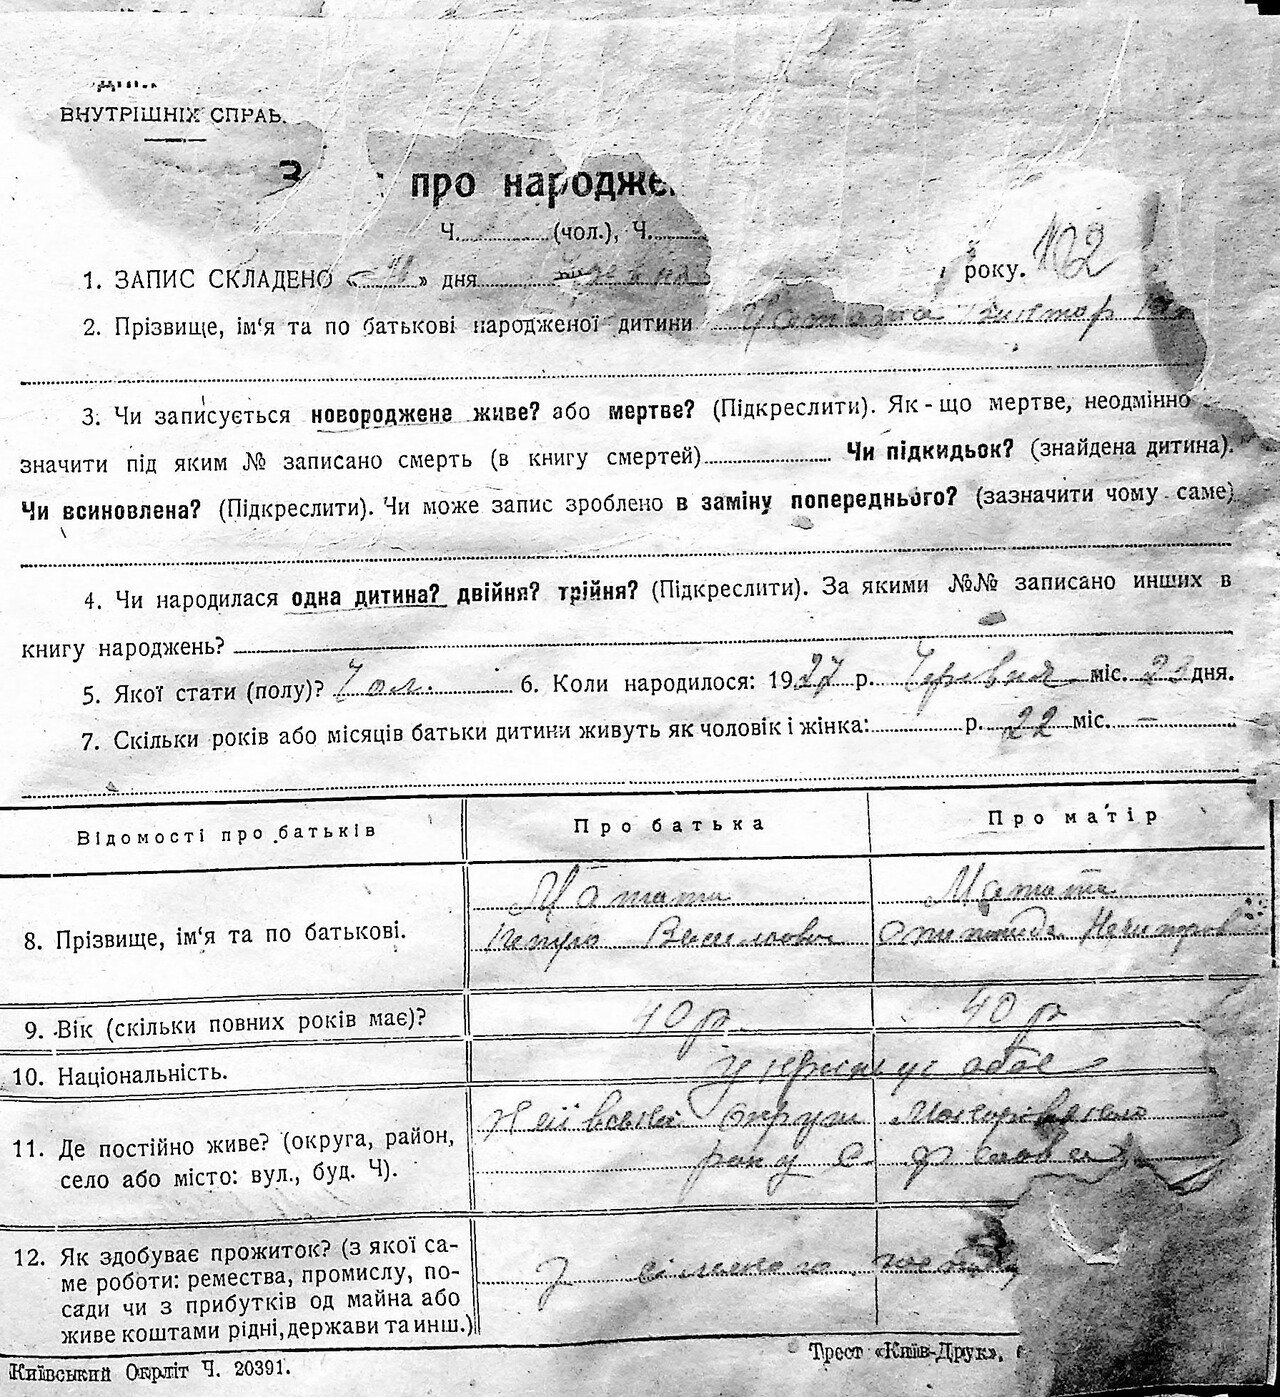 ВНУТРІШНІХ СПРАВ.
про народже
Ч. (чол.), Ч.
1. ЗАПИС СКЛАДЕНО « » дня року. 102
2. Прізвище, ім'я та по батькові народженої дитини
3. Чи записується новороджене живе? або мертве? (Підкреслити). Як-що мертве, неодмінно
значити під яким № записано смерть (в книгу смертей) Чи підкидьок? (знайдена дитина).
Чи всиновлена? (Підкреслити). Чи може запис зроблено в заміну попереднього? (зазначити чому саме)
4. Чи народилася одна дитина? двійня? трійня? (Підкреслити). За якими №№ записано инших в
книгу народжень?
5. Якої стати (полу)? Чол. 6. Коли народилося: 1927 р. Червня міс. 23 дня.
7. Скільки років або місяців батьки дитини живуть як чоловік і жінка: р. 22 міс. —
Відомості про батьків Про батька Про матір
8. Прізвище, ім'я та по батькові. Петро Васильович
9. Вік (скільки повних років має)? 40 р. 40 р
10. Національність. українці обоє
11. Де постійно живе? (округа, район, село або місто: вул., буд. Ч). Київської округи Макарівського
рану с.
12. Як здобуває прожиток? (з якої са-
ме роботи: ремества, промислу, по-
сади чи з прибутків од майна або
живе коштами рідні, держави та инш.) З сільського
Київський Окрліт Ч. 20391.
Трест «Київ-Друк»,